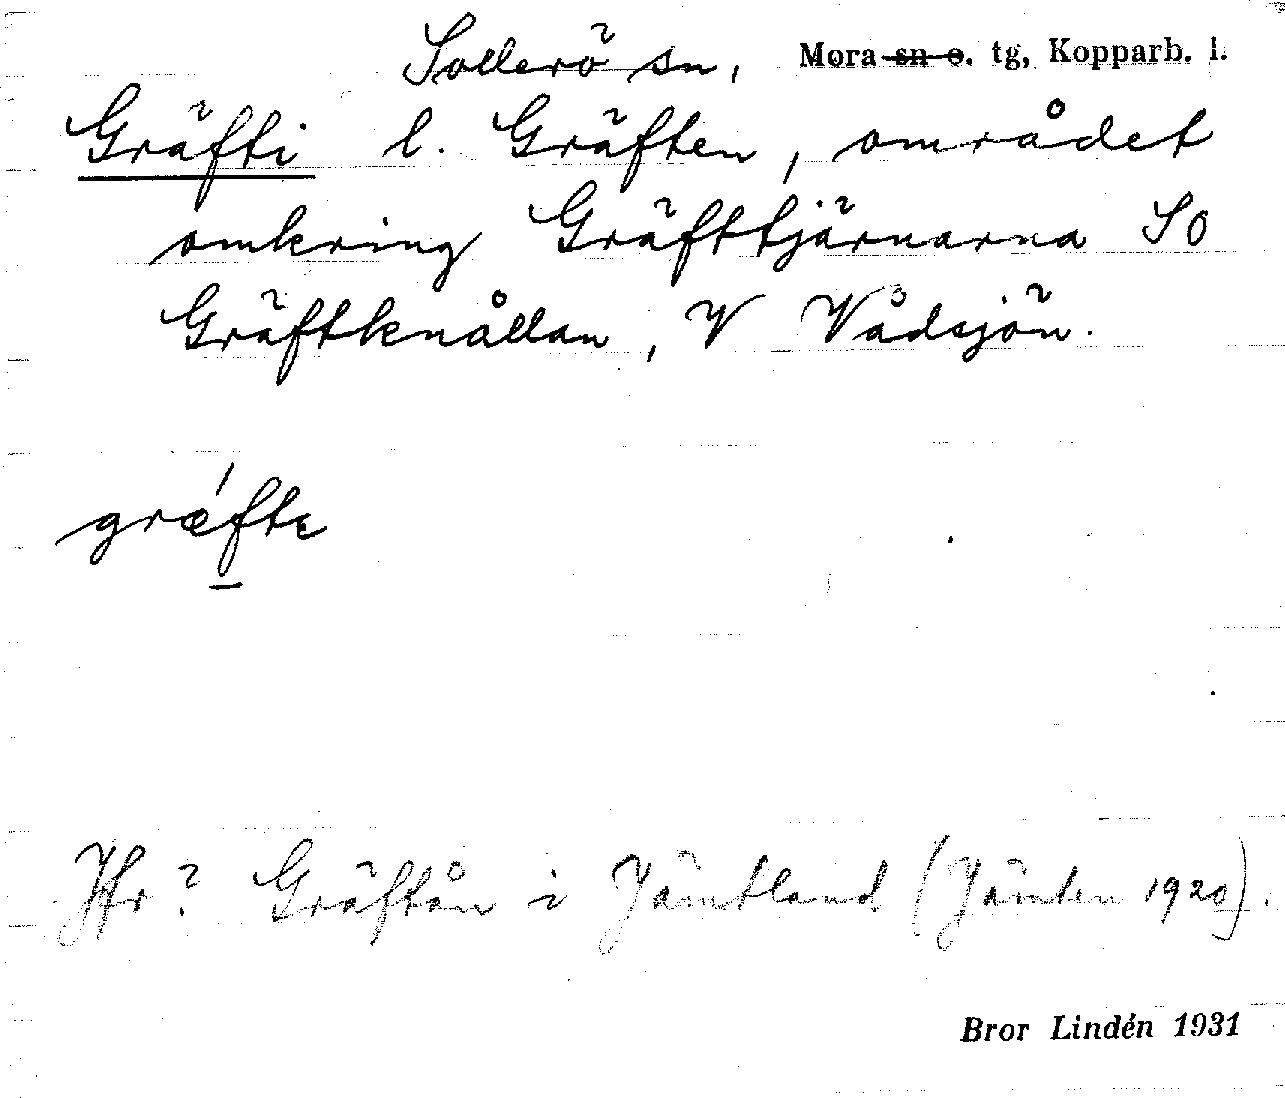 Sollerö sn, Mora sn o. tg, Kopparb. l.
Gräfti l. Gräften, området
omkring Gräfttjärnarna SO
Gräftknållan, V Vådsjön.
græfte
Jfr? Gräftån i Jämtland (Jämten 1920).
Bror Lindén 1931